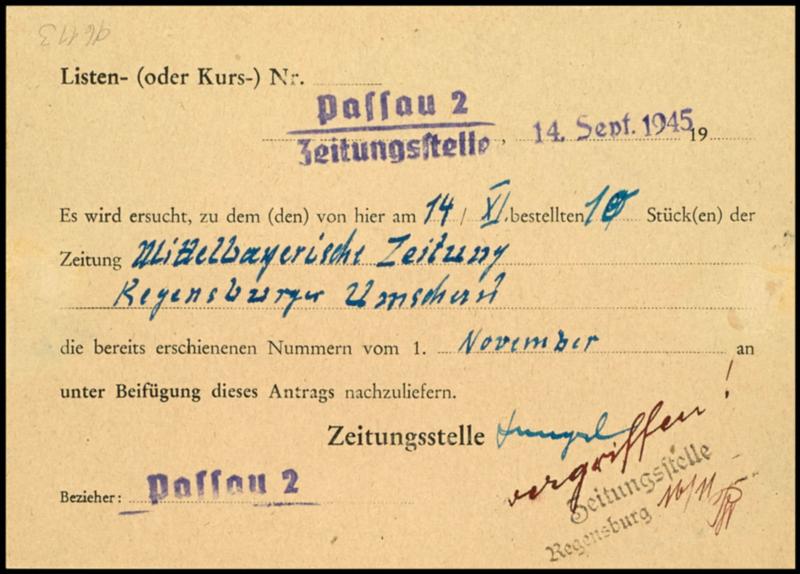 96113
Listen- (oder Kurs-) Nr.
Passau 2
Zeitungsstelle , 14. Sept. 1945 19
Es wird ersucht, zu dem (den) von hier am 14 / XI. bestellten 10 Stück(en) der
Zeitung Mittelbayerische Zeitung
Regensburger Umschau
die bereits erschienenen Nummern vom 1. November an
unter Beifügung dieses Antrags nachzuliefern.
Zeitungsstelle
vergriffen!
Bezieher: Passau 2
Zeitungsstelle
Regensburg 16/11